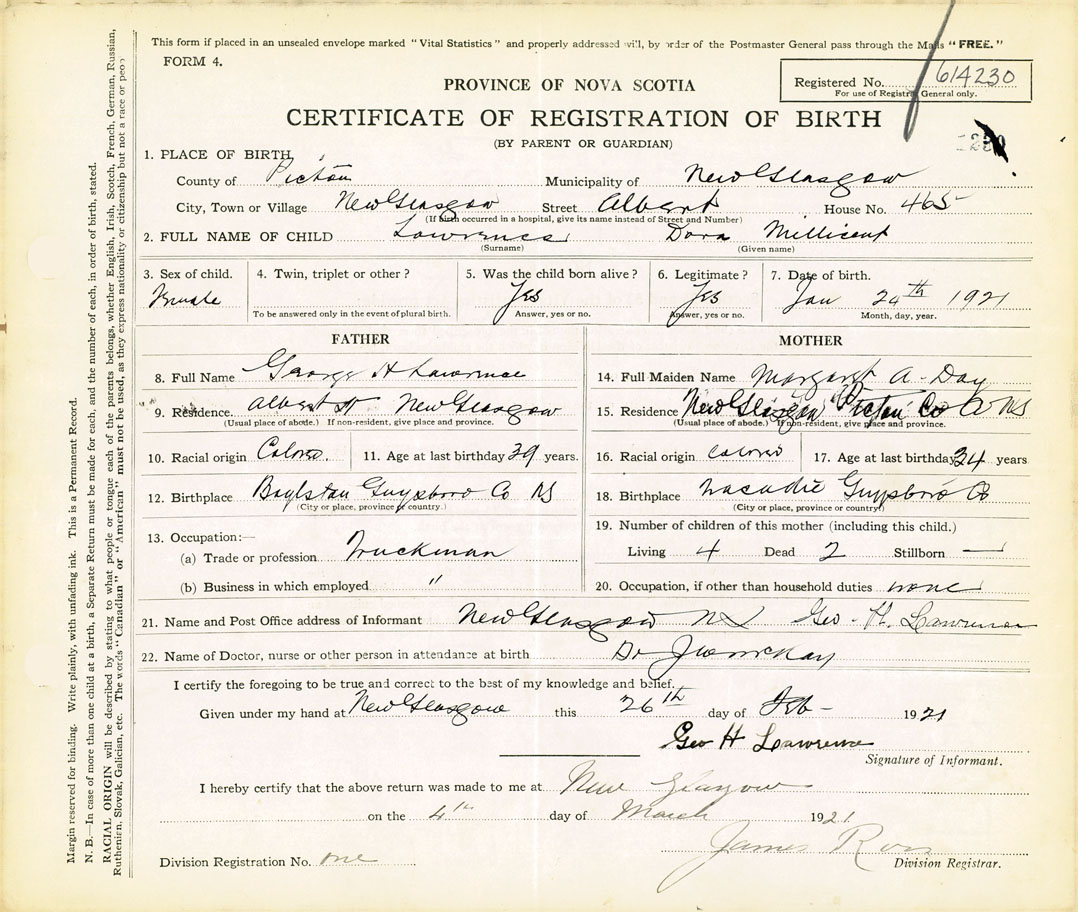 This form if placed in an unsealed envelope marked "Vital Statistics" and properly addressed will, by order of the Postmaster General pass through the Mails "FREE."
FORM 4.
Registered No. 614230
For use of Registrar General only.
PROVINCE OF NOVA SCOTIA
CERTIFICATE OF REGISTRATION OF BIRTH
(BY PARENT OR GUARDIAN)
1. PLACE OF BIRTH,
County of Pictou Municipality of New Glasgow
City, Town or Village New Glasgow Street Albert House No. 465
(If birth occurred in a hospital, give its name instead of Street and Number)
2. FULL NAME OF CHILD Lawrence Dora Millicent
(Surname) (Given name)
3. Sex of child. 4. Twin, triplet or other? 5. Was the child born alive? 6. Legitimate? 7. Date of birth.
Female Yes Yes Jan 24th 1921
To be answered only in the event of plural birth. Answer, yes or no. Answer, yes or no. Month, day, year.
FATHER
8. Full Name George H Lawrence
9. Residence. Albert St New Glasgow
(Usual place of abode.) If non-resident, give place and province.
10. Racial origin Colored. 11. Age at last birthday 39 years.
12. Birthplace Boylston Guysboro Co NS
(City or place, province or country.)
13. Occupation:—
(a) Trade or profession Truckman
(b) Business in which employed "
MOTHER
14. Full Maiden Name Margaret A. Day
15. Residence New Glasgow Pictou Co NS
(Usual place of abode.) If non-resident, give place and province.
16. Racial origin colored 17. Age at last birthday 34 years
18. Birthplace Guysboro Co
(City or place, province or country)
19. Number of children of this mother (including this child.)
Living 4 Dead 2 Stillborn —
20. Occupation, if other than household duties none
21. Name and Post Office address of Informant New Glasgow NS Geo. H. Lawrence
22. Name of Doctor, nurse or other person in attendance at birth Dr
I certify the foregoing to be true and correct to the best of my knowledge and belief.
Given under my hand at New Glasgow this 26th day of Feb - 1921
Geo H Lawrence
Signature of Informant.
I hereby certify that the above return was made to me at New Glasgow
on the 4th day of March 1921
James Ross
Division Registration No. one Division Registrar.
Margin reserved for binding. Write plainly, with unfading ink. This is a Permanent Record.
N. B.—In case of more than one child at a birth, a Separate Return must be made for each, and the number of each, in order of birth, stated.
RACIAL ORIGIN will be described by stating to what people or tongue each of the parents belongs, whether English, Irish, Scotch, French, German, Russian,
Ruthenian, Slovak, Galician, etc. The words "Canadian" or "American" must not be used, as they express nationality or citizenship but not a race or peop